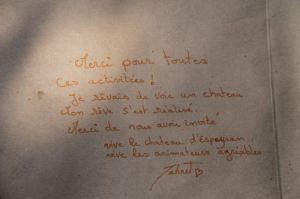 Merci pour toutes
Ces activitées !
Je rêvais de voir un chateau
Mon rêve s'est réalisé
Merci de nous avoir invité
vive le chateau d'Espeyran
vive les animateurs agréables